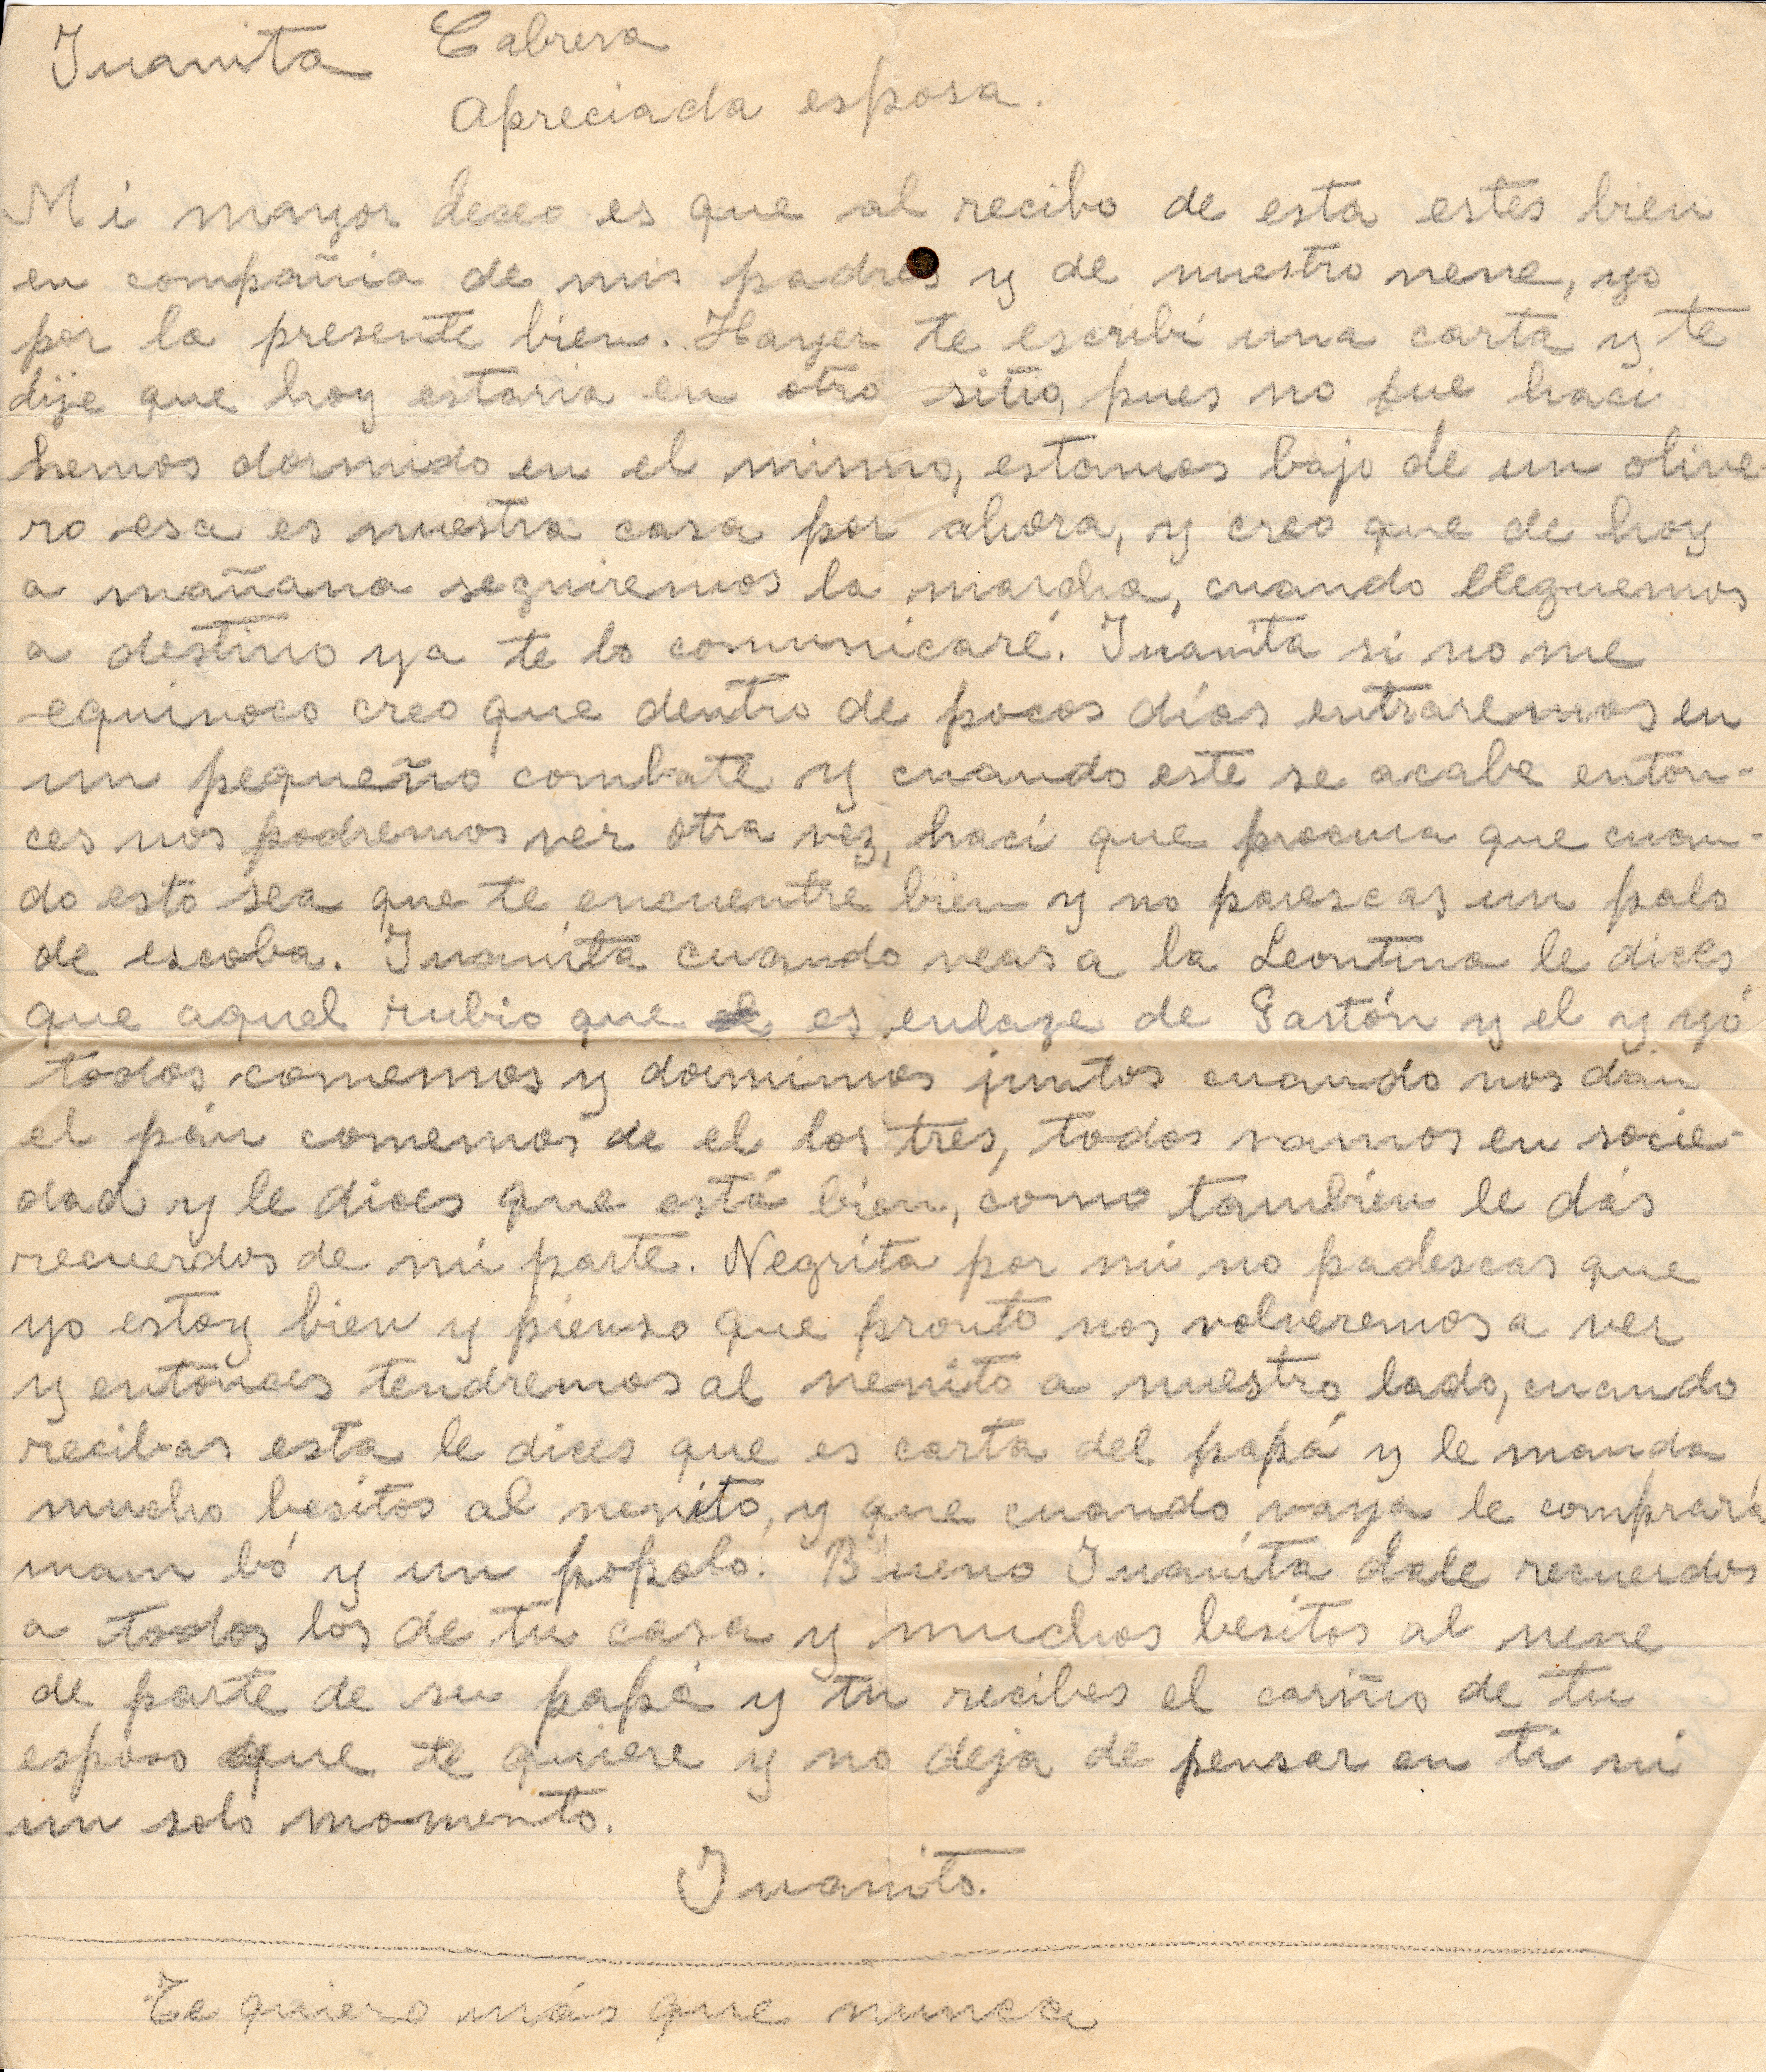 Juanita Cabrera
Apreciada esposa.
Mi mayor deceo es que al recibo de esta estes bien
en compañia de mis padres y de nuestro nene, yo
por la presente bien. Hayer te escribí una carta y te
dije que hoy estaria en otro sitio, pues no fue haci
hemos dormido en el mismo, estamos bajo de un olive-
ro esa es nuestra casa por ahora, y creo que de hoy
a mañana seguiremos la marcha, cuando lleguemos
a destino ya te lo comunicaré. Juanita si no me
equinoco creo que dentro de pocos días entraremos en
un pequeño combate y cuando este se acabe enton-
ces nos podremos ver otra vez, haci que procura que cuan-
do esto sea que te encuentre bien y no parescas un palo
de escoba. Juanita cuando veas a la Leontina le dices
que aquel rubio que es enlaze de Gastón y el y yó
todos comemos y dormimos juntos cuando nos dán
el pán comemos de el los tres, todos vamos en socie-
dad y le dices que está bien, como tambien le dás
recuerdos de mi parte. Negrita por mi no padescas que
yo estoy bien y pienso que pronto nos volveremos a ver
y entonces tendremos al nenito a nuestro lado, cuando
recibas esta le dices que es carta del papá y le manda
mucho besitos al nenito, y que cuando vaya le comprará
mam bó y un popolo. Bueno Juanita dale recuerdos
a todos los de tu casa y muchos besitos al nene
de parte de su papá y tu recibes el cariño de tu
esposo que te quiere y no deja de pensar en ti ni
un solo momento.
Juanito.
Te quiero más que nunca